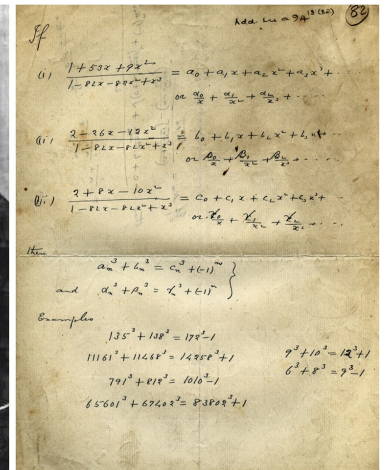 82
Add. Ms a 94
If
(i) (1+53x+9x²)/(1-82x-82x²+x³) = a₀ + a₁x + a₂x² + a₃x³ + ····
or α₀/x + α₁/x² + α₂/x³ + ····
(ii) (2-26x-12x²)/(1-82x-82x²+x³) = b₀ + b₁x + b₂x² + b₃x³ + ····
or β₀/x + β₁/x² + β₂/x³ ····
(iii) (2+8x-10x²)/(1-82x-82x²+x³) = c₀ + c₁x + c₂x² + c₃x³ + ····
or γ₀/x + γ₁/x² + γ₂/x³ ····
then
aₙ³ + bₙ³ = cₙ³ + (-1)ⁿ }
and αₙ³ + βₙ³ = γₙ³ + (-1)ⁿ }
Examples
135³ + 138³ = 172³ - 1
11161³ + 11468³ = 14258³ + 1 9³ + 10³ = 12³ + 1
791³ + 812³ = 1010³ - 1 6³ + 8³ = 9³ - 1
65601³ + 67402³ = 83802³ + 1